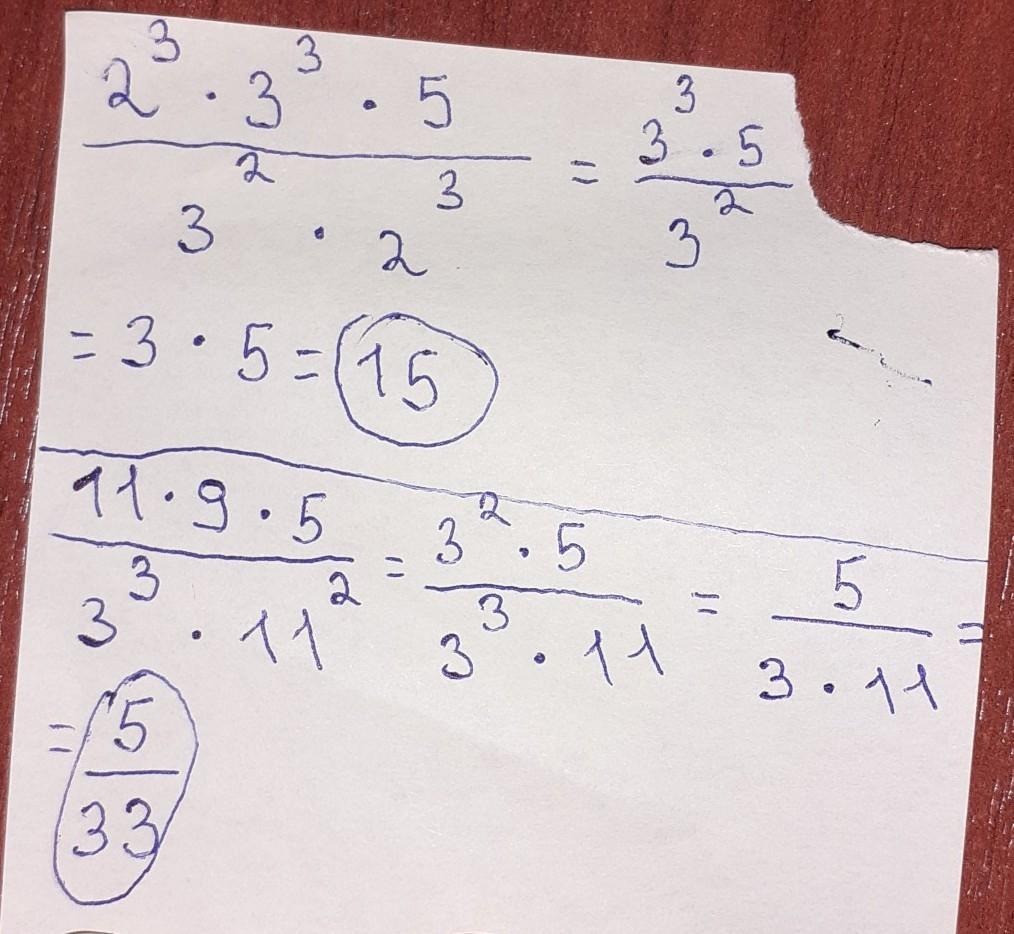 2³ · 3³ · 5 / 3² · 2³ = 3³ · 5 / 3²
= 3 · 5 = 15
11 · 9 · 5 / 3³ · 11² = 3² · 5 / 3³ · 11 = 5 / 3 · 11 =
= 5 / 33